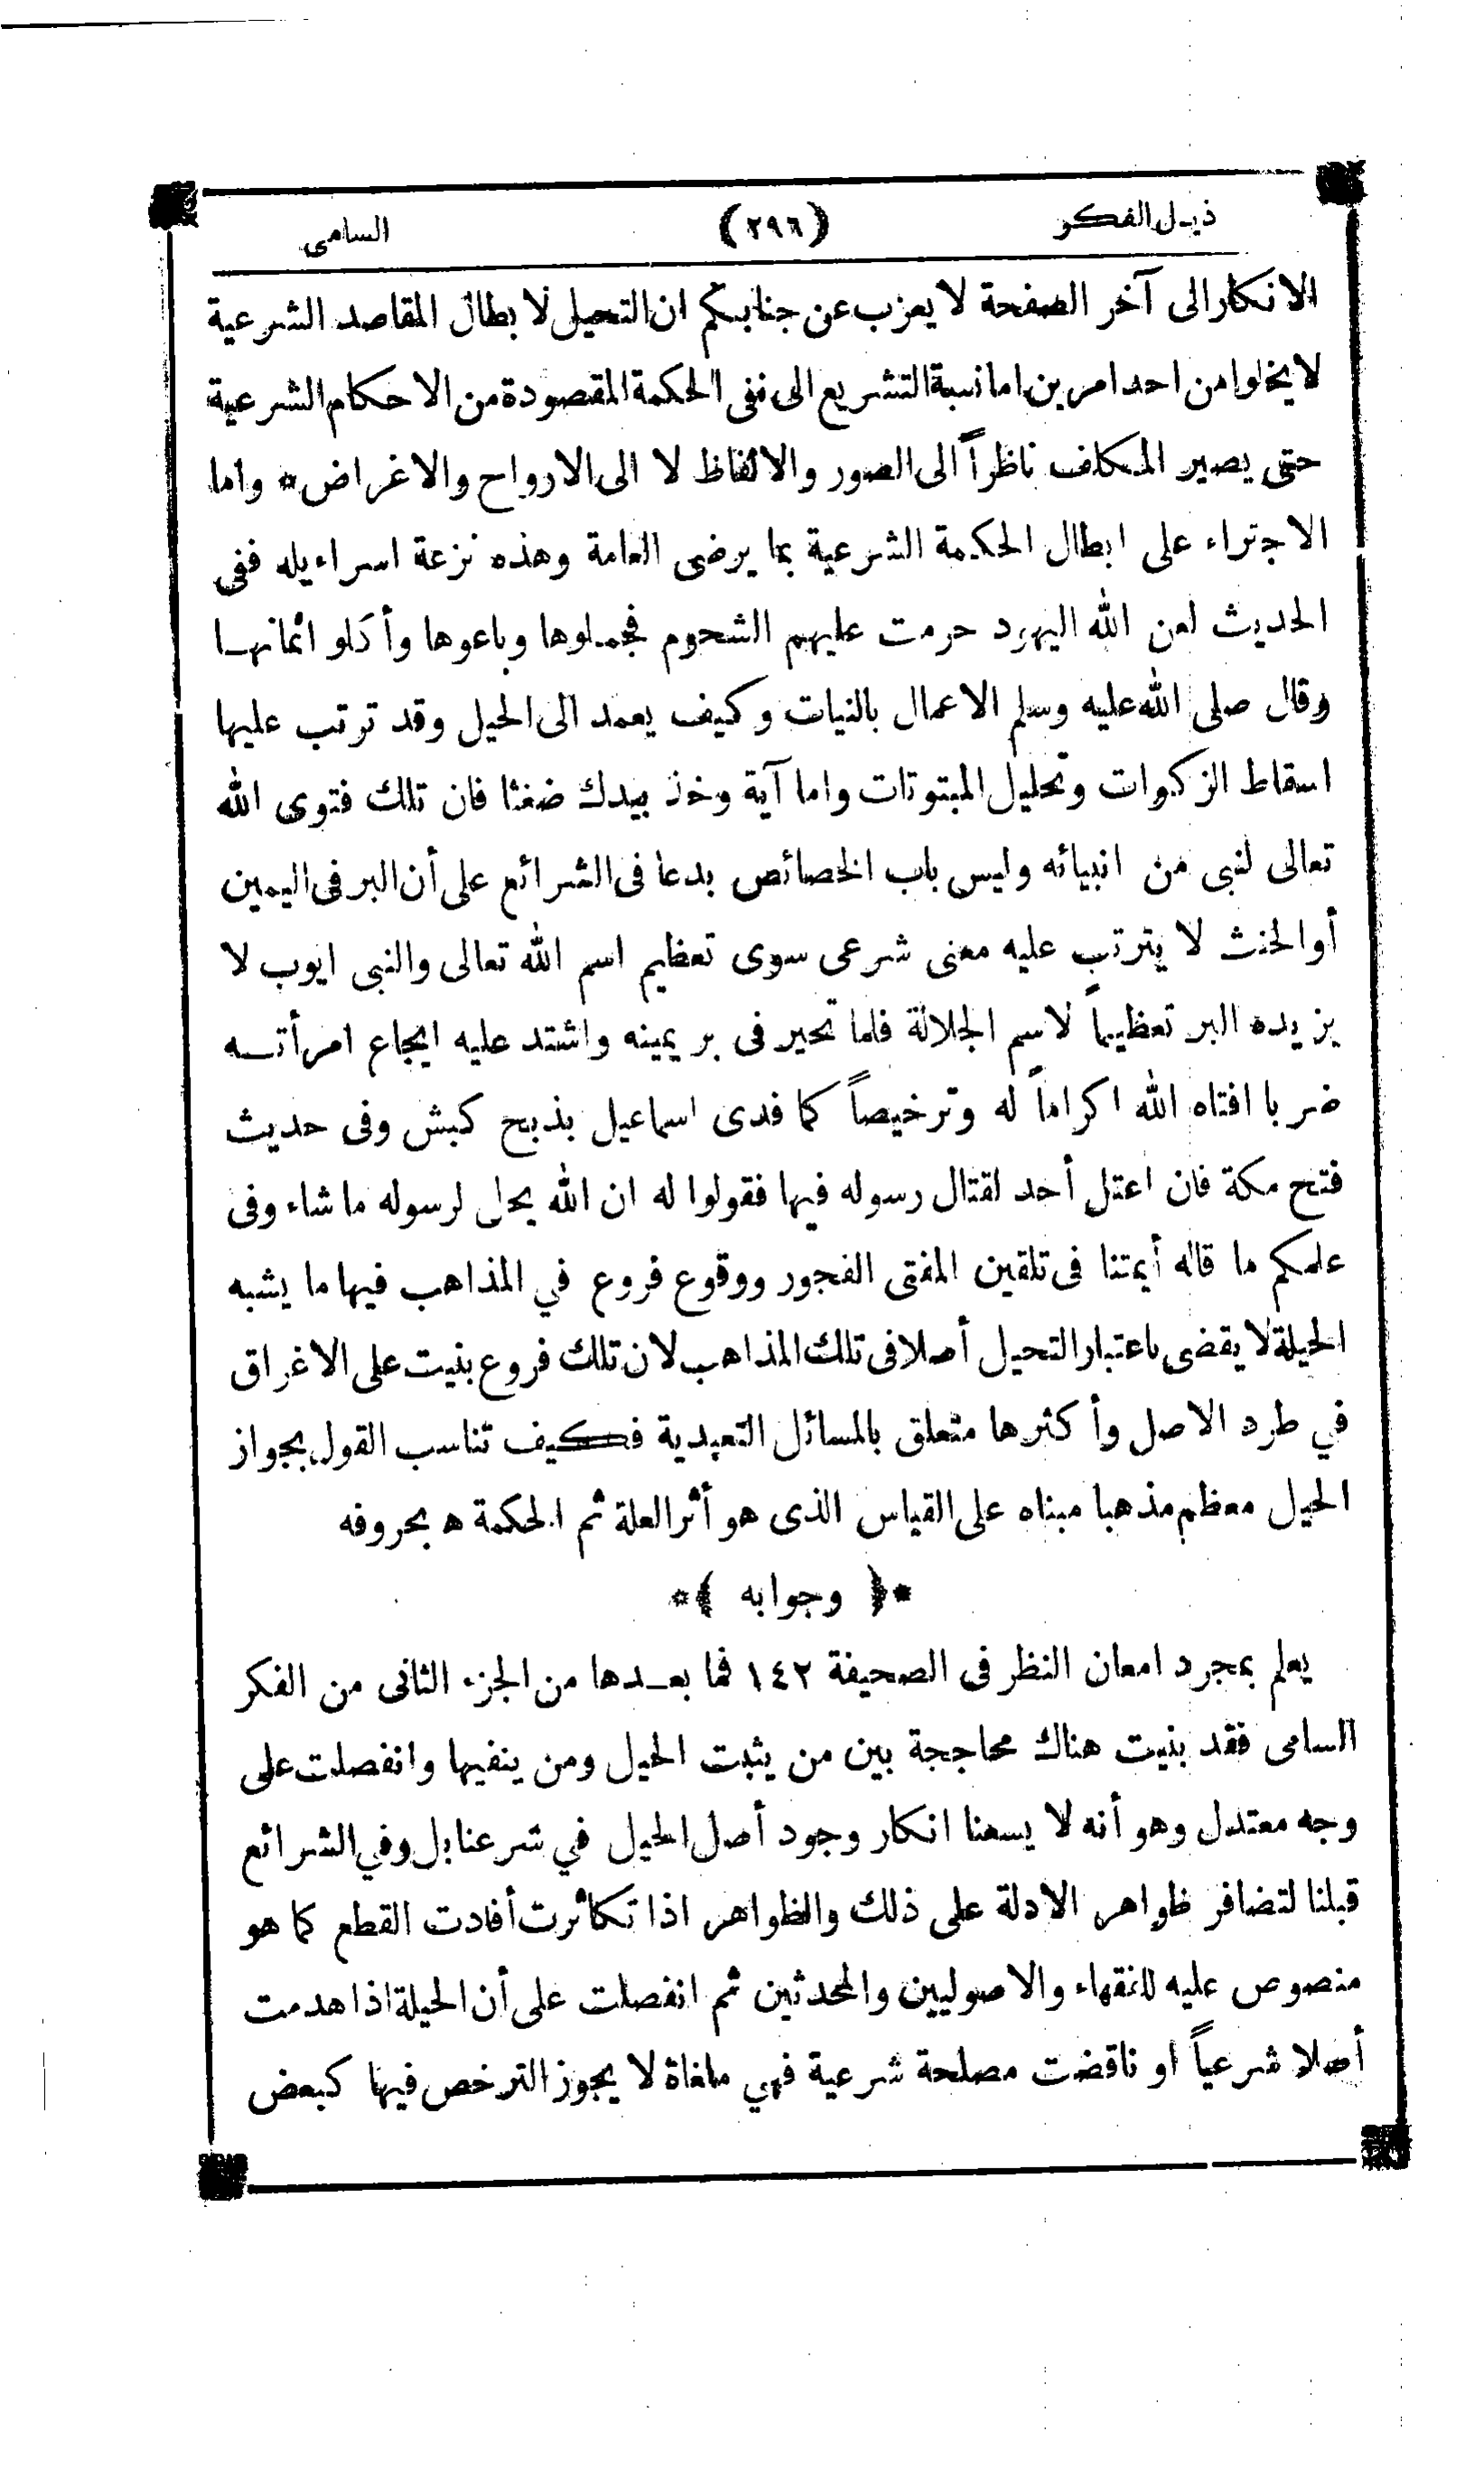 ذيل الفكر (٢٩٦) السامى
الانكار الى آخر الصفحة لا يعزب عن جنابكم ان التحيل لا بطال المقاصد الشرعية
لا يخلوا من احد امرين اما نسبة التشريع الى نفى الحكمة المقصودة من الاحكام الشرعية
حتى يصير المكلف ناظراً الى الصور والالفاظ لا الى الارواح والاغراض * واما
الاجتراء على ابطال الحكمة الشرعية بما يرضى العامة وهذه نزعة اسراءيله ففى
الحديث لعن الله اليهود حرمت عليهم الشحوم فجملوها وباعوها وأكلو اثمانها
وقال صلى الله عليه وسلم الاعمال بالنيات وكيف يعمد الى الحيل وقد ترتب عليها
اسقاط الزكوات وتحليل المبتوتات واما آية وخذ بيدك ضغثا فان تلك فتوى الله
تعالى لنبى من انبيائه وليس باب الخصائص بدعا فى الشرائع على أن البر فى اليمين
أو الحنث لا يترتب عليه معنى شرعى سوى تعظيم اسم الله تعالى والنبى ايوب لا
يزيده البر تعظيماً لاسم الجلالة فلما تحير فى بر يمينه واشتد عليه ايجاع امرأته
ضربا افتاه الله اكراماً له وترخيصاً كما فدى اسماعيل بذبح كبش وفى حديث
فتح مكة فان اعتل أحد لقتال رسوله فيها فقولوا له ان الله يحل لرسوله ما شاء وفى
علمكم ما قاله أيمتنا فى تلقين المفتى الفجور ووقوع فروع في المذاهب فيها ما يشبه
الحيلة لا يقضى باعتبار التحيل أصلا فى تلك المذاهب لان تلك فروع بنيت على الاغراق
في طرد الاصل وأكثرها متعلق بالمسائل التعبدية فكيف تناسب القول بجواز
الحيل معظم مذهبا مبناه على القياس الذى هو أثر العلة ثم الحكمة ه بحروفه
*﴿ وجوابه ﴾*
يعلم بمجرد امعان النظر فى الصحيفة ١٤٢ فما بعدها من الجزء الثانى من الفكر
السامى فقد بنيت هناك محاججة بين من يثبت الحيل ومن ينفيها وانفصلت على
وجه معتدل وهو أنه لا يسعنا انكار وجود أصل الحيل في شرعنا بل وفي الشرائع
قبلنا لتضافر ظواهر الادلة على ذلك والظواهر اذا تكاثرت أفادت القطع كما هو
منصوص عليه للفقهاء والاصوليين والمحدثين ثم انفصلت على أن الحيلة اذا هدمت
أصلا شرعياً او ناقضت مصلحة شرعية فهي ملغاة لا يجوز الترخص فيها كبعض